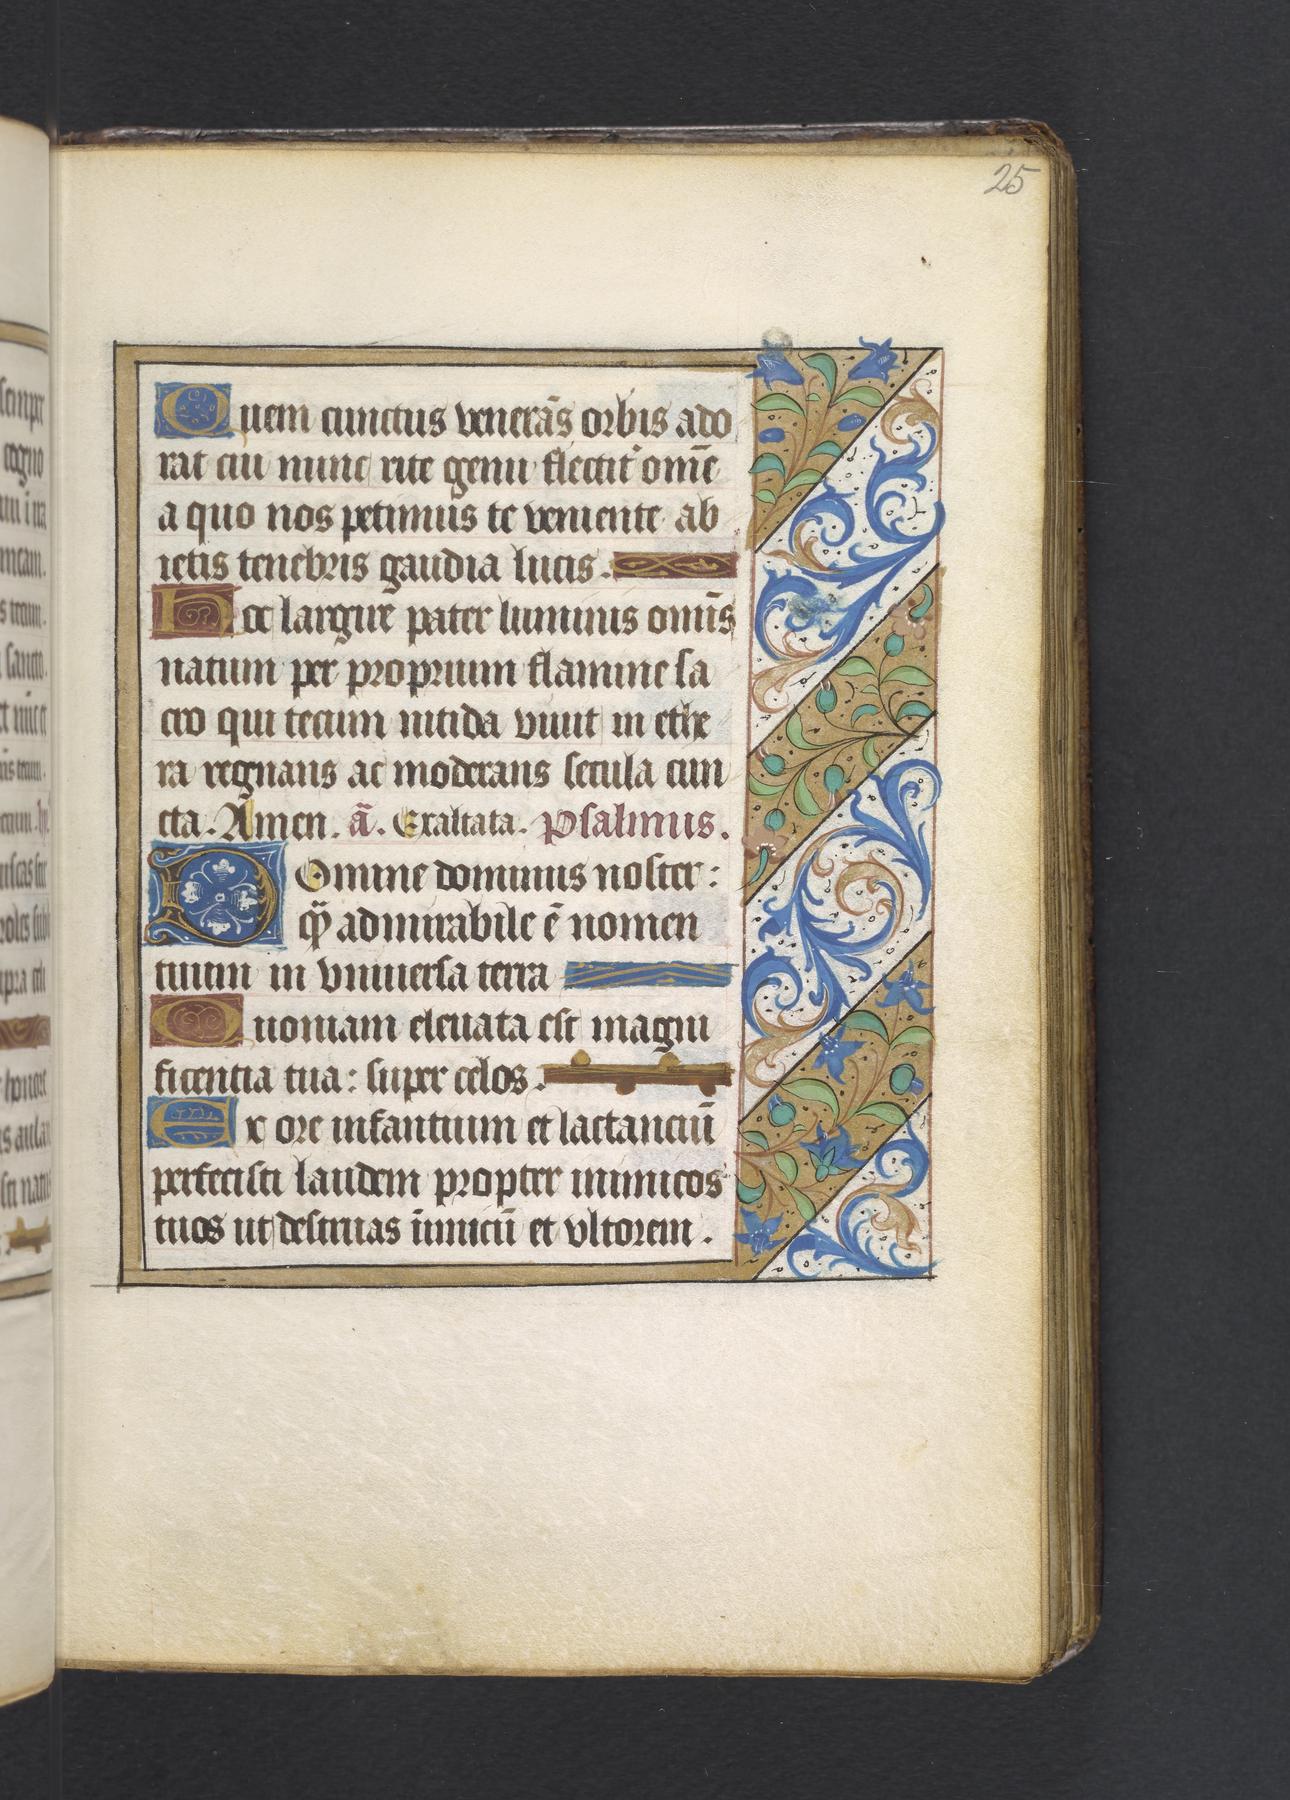 25
Quem cunctus venerās orbis ado
rat cui nunc rite genu flectit' om̄e
a quo nos petimus te veniente ab
ietis tenebris gaudia lucis.
Hec largire pater luminis omīs
natum per proprium flamine sa
cro qui tecum nitida vivit in ethe
ra regnans ac moderans secula cun
cta. Amen. ā. Exaltata. psalmus.
DOmine dominus noster:
qȝ admirabile ē nomen
tuum in vniuersa terra
Quoniam eleuata est magni
ficentia tua: super celos.
Ex ore infantium et lactanciū
perfecisti laudem propter inimicos
tuos ut destruas īimicū et vltorem.